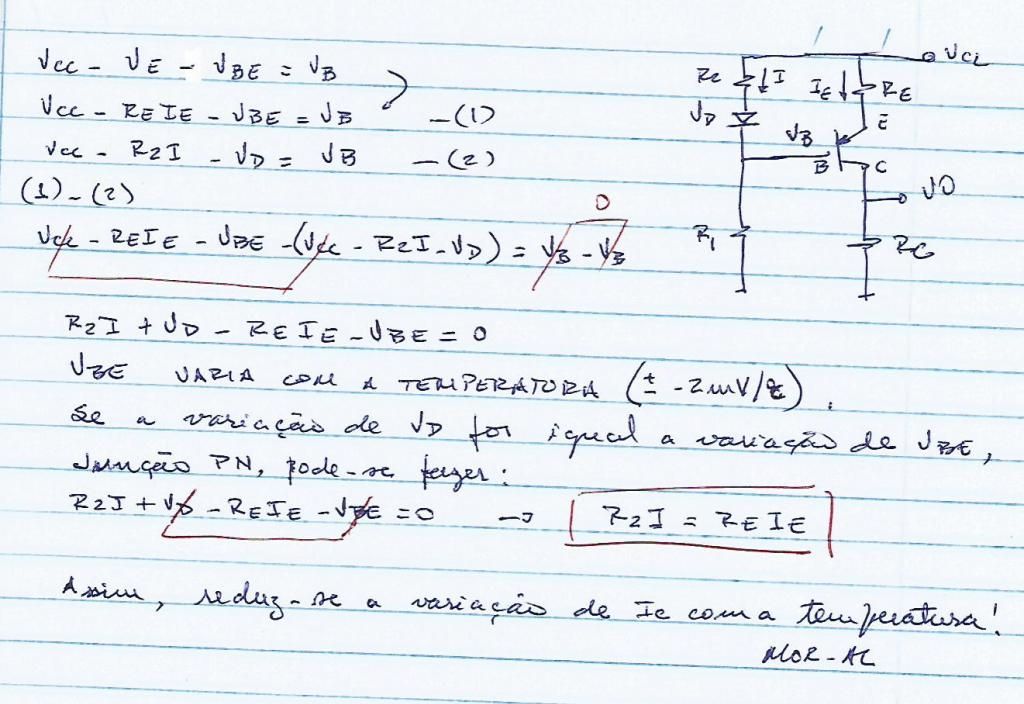 Vcc - VE - VBE = VB
Vcc - REIE - VBE = VB -(1)
Vcc - R2I - VD = VB -(2)
(1) - (2)
0
Vcc - REIE - VBE -(Vcc - R2I - VD) = VB - VB
R2I + VD - REIE - VBE = 0
VBE VARIA COM A TEMPERATURA (± -2mV/°C).
Se a variação de VD for igual a variação de VBE,
Junção PN, pode-se fazer:
R2I + VD - REIE - VBE = 0 → R2I = REIE
Assim, reduz-se a variação de Ic com a temperatura!
MOR-AL
VCC
R2 I IE RE
VD E
VB
B C
VO
R1 RC